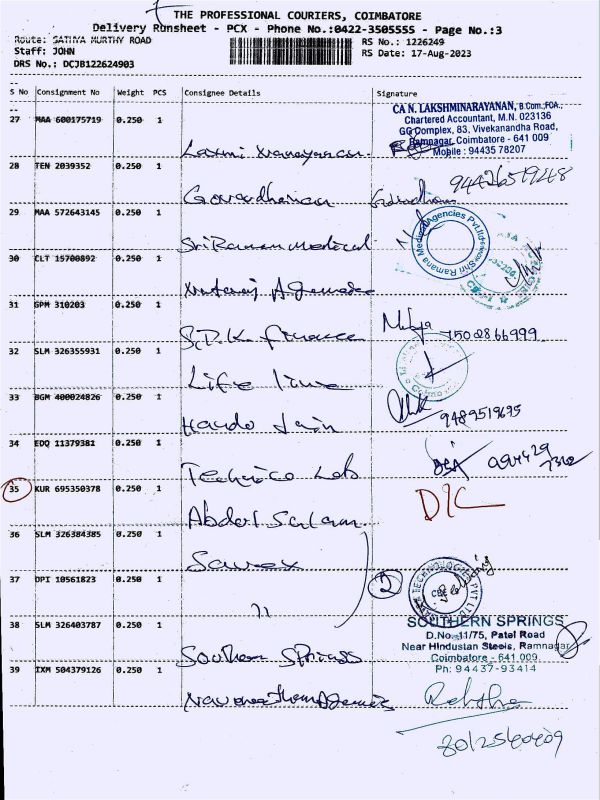 THE PROFESSIONAL COURIERS, COIMBATORE
Delivery Runsheet - PCX - Phone No.:0422-3505555 - Page No.:3
Route: SATHYA MURTHY ROAD
RS No.: 1226249
Staff: JOHN
RS Date: 17-Aug-2023
DRS No.: DCJB122624903
S No Consignment No Weight PCS Consignee Details Signature
27 MAA 600175719 0.250 1
CA N. LAKSHMINARAYANAN, B.Com.,FCA.,
Chartered Accountant, M.N. 023136
GG Complex, 83, Vivekanandha Road,
Ramnagar, Coimbatore - 641 009
Mobile : 94435 78207
Laxmi Narayanan
28 TEN 2039352 0.250 1
Govardhanan
29 MAA 572643145 0.250 1
Sri Raman Medical
Sri Ramana Medical Agencies Pvt Ltd
30 CLT 15700892 0.250 1
31 GPM 310203 0.250 1
S.P.K finance
7502866999
32 SLM 326355931 0.250 1
Life line
33 BGM 400024826 0.250 1
Jain
9489519695
34 EDQ 11379381 0.250 1
Technico Lab
35 KUR 695350378 0.250 1
Abdul Salam
D/C
36 SLM 326384385 0.250 1
Savex
37 DPI 10561823 0.250 1
11
2
TECHNOLOGIES PVT LTD
38 SLM 326403787 0.250 1
Southern Springs
SOUTHERN SPRINGS
D.No. 11/75, Patel Road
Near Hindustan Steels, Ramnagar
Coimbatore - 641 009.
Ph: 94437-93414
39 IXM 504379126 0.250 1
Navaneetham Agencies
8012540409